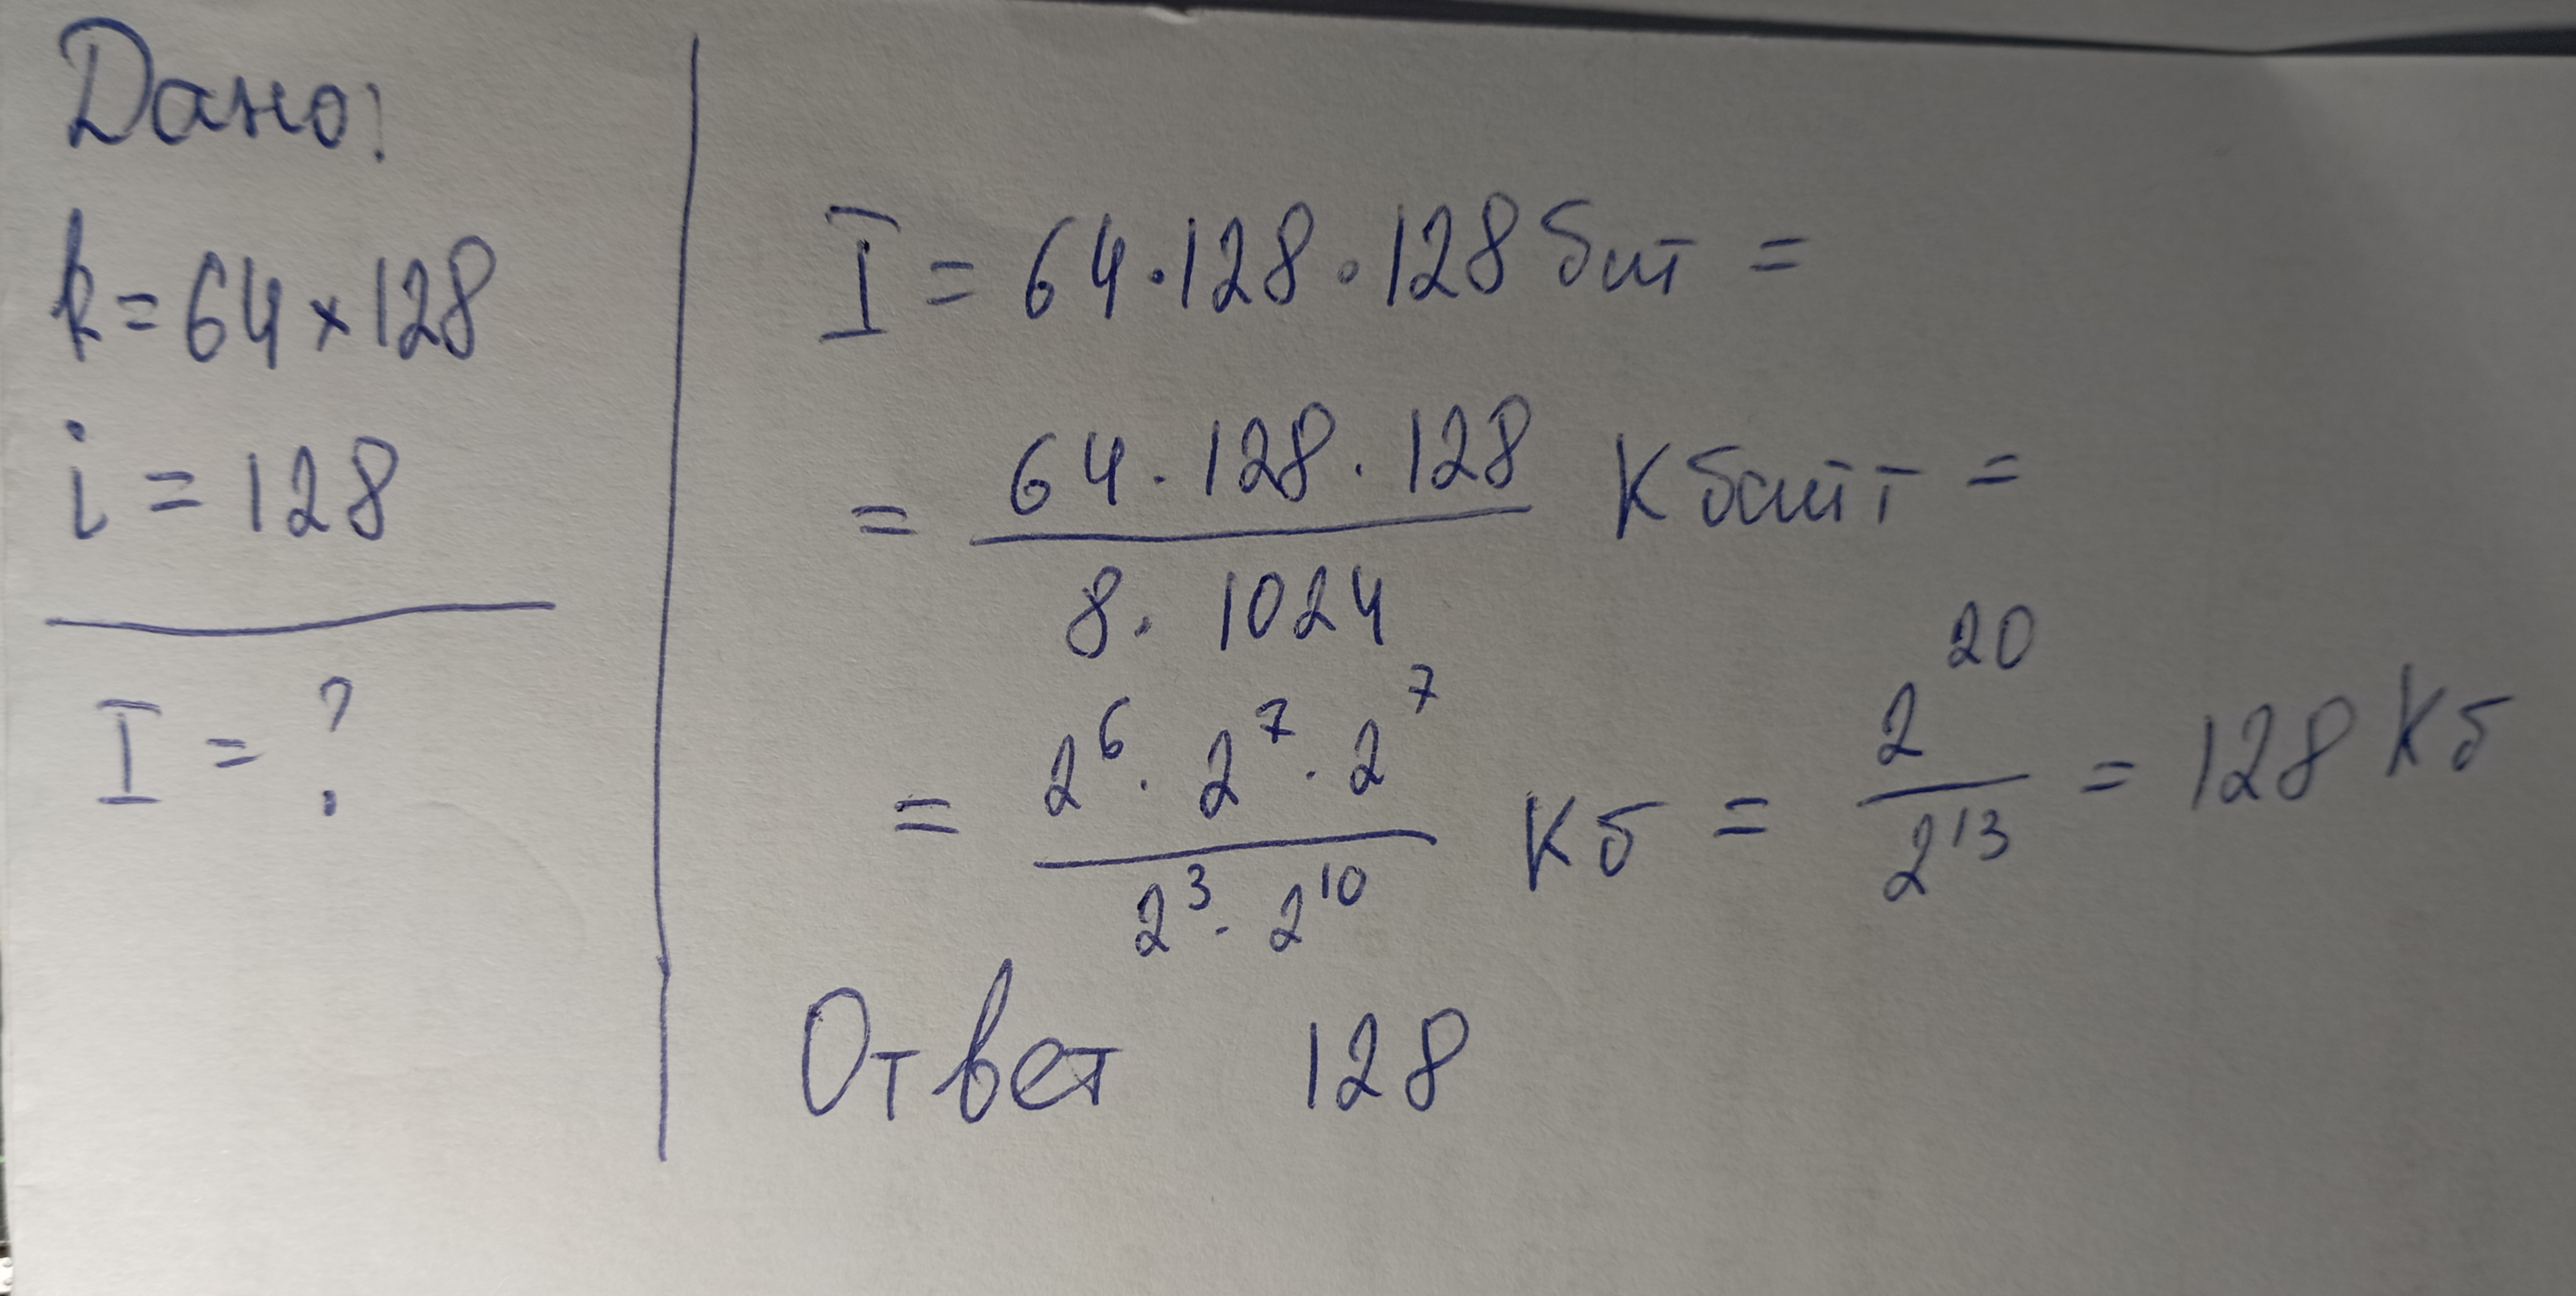 Дано:
k = 64 × 128
i = 128
I = ?
I = 64 · 128 · 128 бит =
= 64 · 128 · 128 / 8 · 1024 Кбайт =
= 2^6 · 2^7 · 2^7 / 2^3 · 2^10 Кб = 2^20 / 2^13 = 128 Кб
Ответ 128